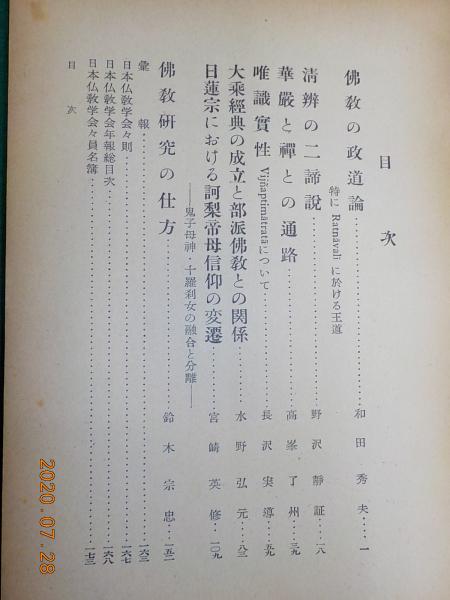 目次
佛教の政道論‥‥‥‥和田秀夫‥‥一
特に Ratnāvalī に於ける王道
清辨の二諦說‥‥‥‥野沢靜証‥‥一八
華嚴と禪との通路‥‥‥‥高峯了州‥‥三九
唯識實性 Vijñaptimātratā について‥‥‥‥長沢実導‥‥五九
大乘經典の成立と部派佛教との関係‥‥‥‥水野弘元‥‥八三
日蓮宗における訶梨帝母信仰の変遷‥‥‥‥宮崎英修‥‥一〇九
――鬼子母神・十羅刹女の融合と分離――
佛教硏究の仕方‥‥‥‥鈴木宗忠‥‥一五二
彙報‥‥‥‥一六三
日本仏教学会々則‥‥‥‥一六七
日本仏教学会年報総目次‥‥‥‥一六八
日本仏教学会々員名簿‥‥‥‥一七三
目次
2020.07.28